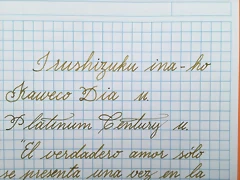 Irushizuku ina-ho
Kaweco Dia u.
Platinum Century u.
"El verdadero amor sólo
se presenta una vez en la